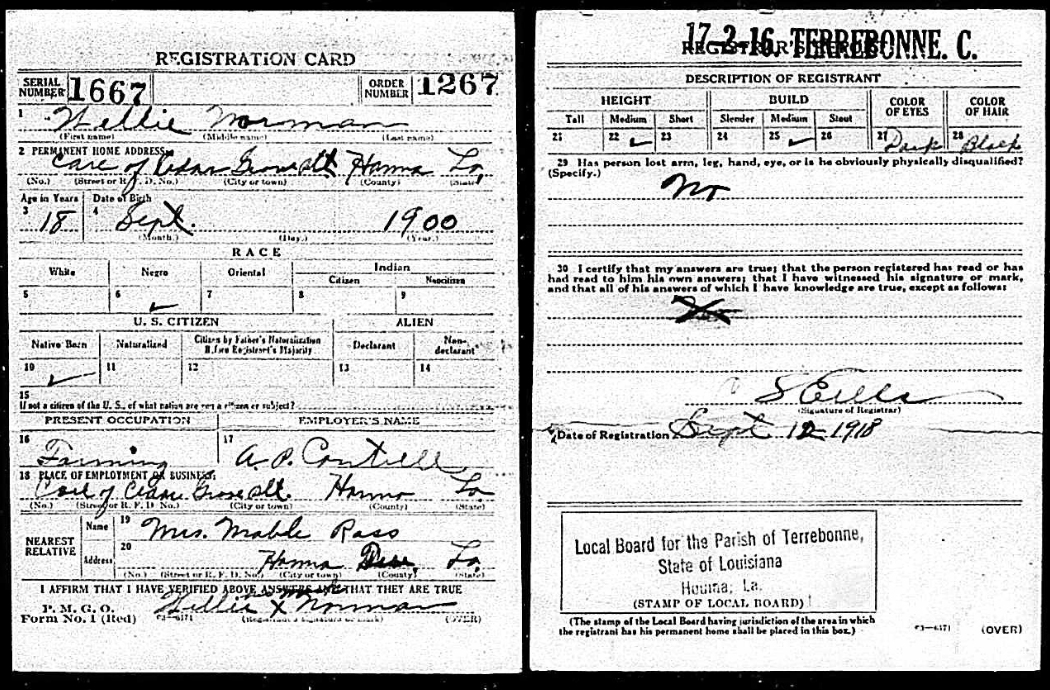 REGISTRATION CARD
SERIAL NUMBER 1667
ORDER NUMBER 1267
1 Willie Norman
(First name) (Middle name) (Last name)
2 PERMANENT HOME ADDRESS:
Care of Cedar Grove Houma La,
(No.) (Street or R. F. D. No.) (City or town) (County) (State)
Age in Years Date of Birth
3 18 4 Sept. 1900
(Month.) (Day.) (Year.)
RACE
White Negro Oriental Indian
Citizen Noncitizen
5 6 ✓ 7 8 9
U. S. CITIZEN ALIEN
Native Born Naturalized Citizen by Father's Naturalization Before Registrant's Majority Declarant Non-declarant
10 ✓ 11 12 13 14
15
If not a citizen of the U. S., of what nation are you a citizen or subject?
PRESENT OCCUPATION EMPLOYER'S NAME
16 Farming 17 A. P. Cantrell
18 PLACE OF EMPLOYMENT OR BUSINESS:
Care of Cedar Grove Houma La
(No.) (Street or R. F. D. No.) (City or town) (County) (State)
NEAREST RELATIVE Name 19 Mrs. Mable Rass
Address 20 Houma La,
(No.) (Street or R. F. D. No.) (City or town) (County) (State)
I AFFIRM THAT I HAVE VERIFIED ABOVE ANSWERS AND THAT THEY ARE TRUE
P. M. G. O.
Form No. 1 (Red) Willie X Norman
63—6171 (Registrant's signature or mark) (OVER)
17-2-16. TERREBONNE. C.
REGISTRAR'S REPORT
DESCRIPTION OF REGISTRANT
HEIGHT BUILD COLOR OF EYES COLOR OF HAIR
Tall Medium Short Slender Medium Stout
21 22 ✓ 23 24 25 ✓ 26 27 Dark 28 Black
29 Has person lost arm, leg, hand, eye, or is he obviously physically disqualified?
(Specify.)
No
30 I certify that my answers are true; that the person registered has read or has
had read to him his own answers; that I have witnessed his signature or mark,
and that all of his answers of which I have knowledge are true, except as follows:
(Signature of Registrar)
Date of Registration Sept 12 1918
Local Board for the Parish of Terrebonne,
State of Louisiana
Houma, La.
(STAMP OF LOCAL BOARD)
(The stamp of the Local Board having jurisdiction of the area in which
the registrant has his permanent home shall be placed in this box.)
63—6171 (OVER)